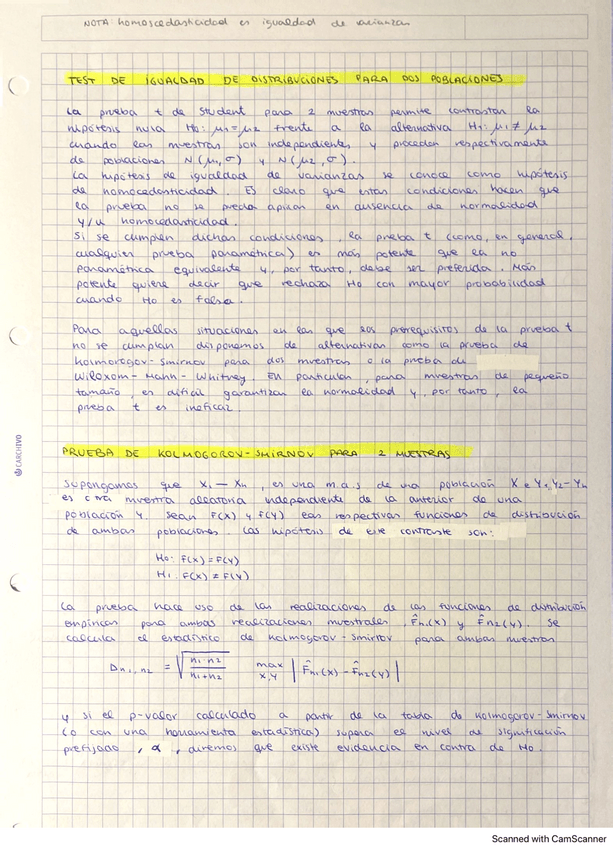 NOTA: homoscedasticidad es igualdad de varianzas
TEST DE IGUALDAD DE DISTRIBUCIONES PARA DOS POBLACIONES
La prueba t de Student para 2 muestras permite contrastar la
hipótesis nula H0: μ1 = μ2 frente a la alternativa H1: μ1 ≠ μ2
cuando las muestras son independientes y proceden respectivamente
de poblaciones N(μ1, σ) y N(μ2, σ).
La hipótesis de igualdad de varianzas se conoce como hipótesis
de homocedasticidad. Es claro que estas condiciones hacen que
la prueba no se pueda aplicar en ausencia de normalidad
y/u homocedasticidad.
Si se cumplen dichas condiciones la prueba t (como, en general,
cualquier prueba paramétrica) es más potente que la no
paramétrica equivalente y, por tanto, debe ser preferida. Más
potente quiere decir que rechaza H0 con mayor probabilidad
cuando H0 es falsa.
Para aquellas situaciones en las que los prerrequisitos de la prueba t
no se cumplan disponemos de alternativas como la prueba de
Kolmorogov-Smirnov para dos muestras o la prueba de
Wilcoxom-Mann-Whitney. En particular, para muestras de pequeño
tamaño, es difícil garantizar la normalidad y, por tanto, la
prueba t es ineficaz.
PRUEBA DE KOLMOGOROV-SMIRNOV PARA 2 MUESTRAS
CARCHIVO
Supongamos que X1 — Xn, es una m.a.s de una población X e Y1, Y2 - Yn
es otra muestra aleatoria independiente de la anterior de una
población Y. Sean F(X) y F(Y) las respectivas funciones de distribución
de ambas poblaciones. Las hipótesis de este contraste son:
H0: F(X) = F(Y)
H1: F(X) ≠ F(Y)
La prueba hace uso de las realizaciones de las funciones de distribución
empíricas para ambas realizaciones muestrales, F̂n1(x) y F̂n2(y). Se
calcula el estadístico de Kolmogorov-Smirnov para ambas muestras
Dn1,n2 = √(n1·n2 / n1+n2) max x,y | F̂n1(x) - F̂n2(y) |
y si el p-valor calculado a partir de la tabla de Kolmogorov-Smirnov
(o con una herramienta estadística) supera el nivel de significación
prefijado, α, diremos que existe evidencia en contra de H0.
Scanned with CamScanner